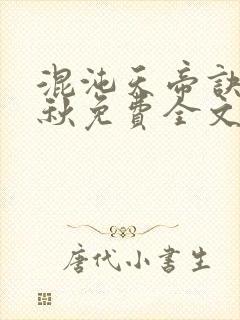 混沌天帝訣
秋免費全文
唐代小書生